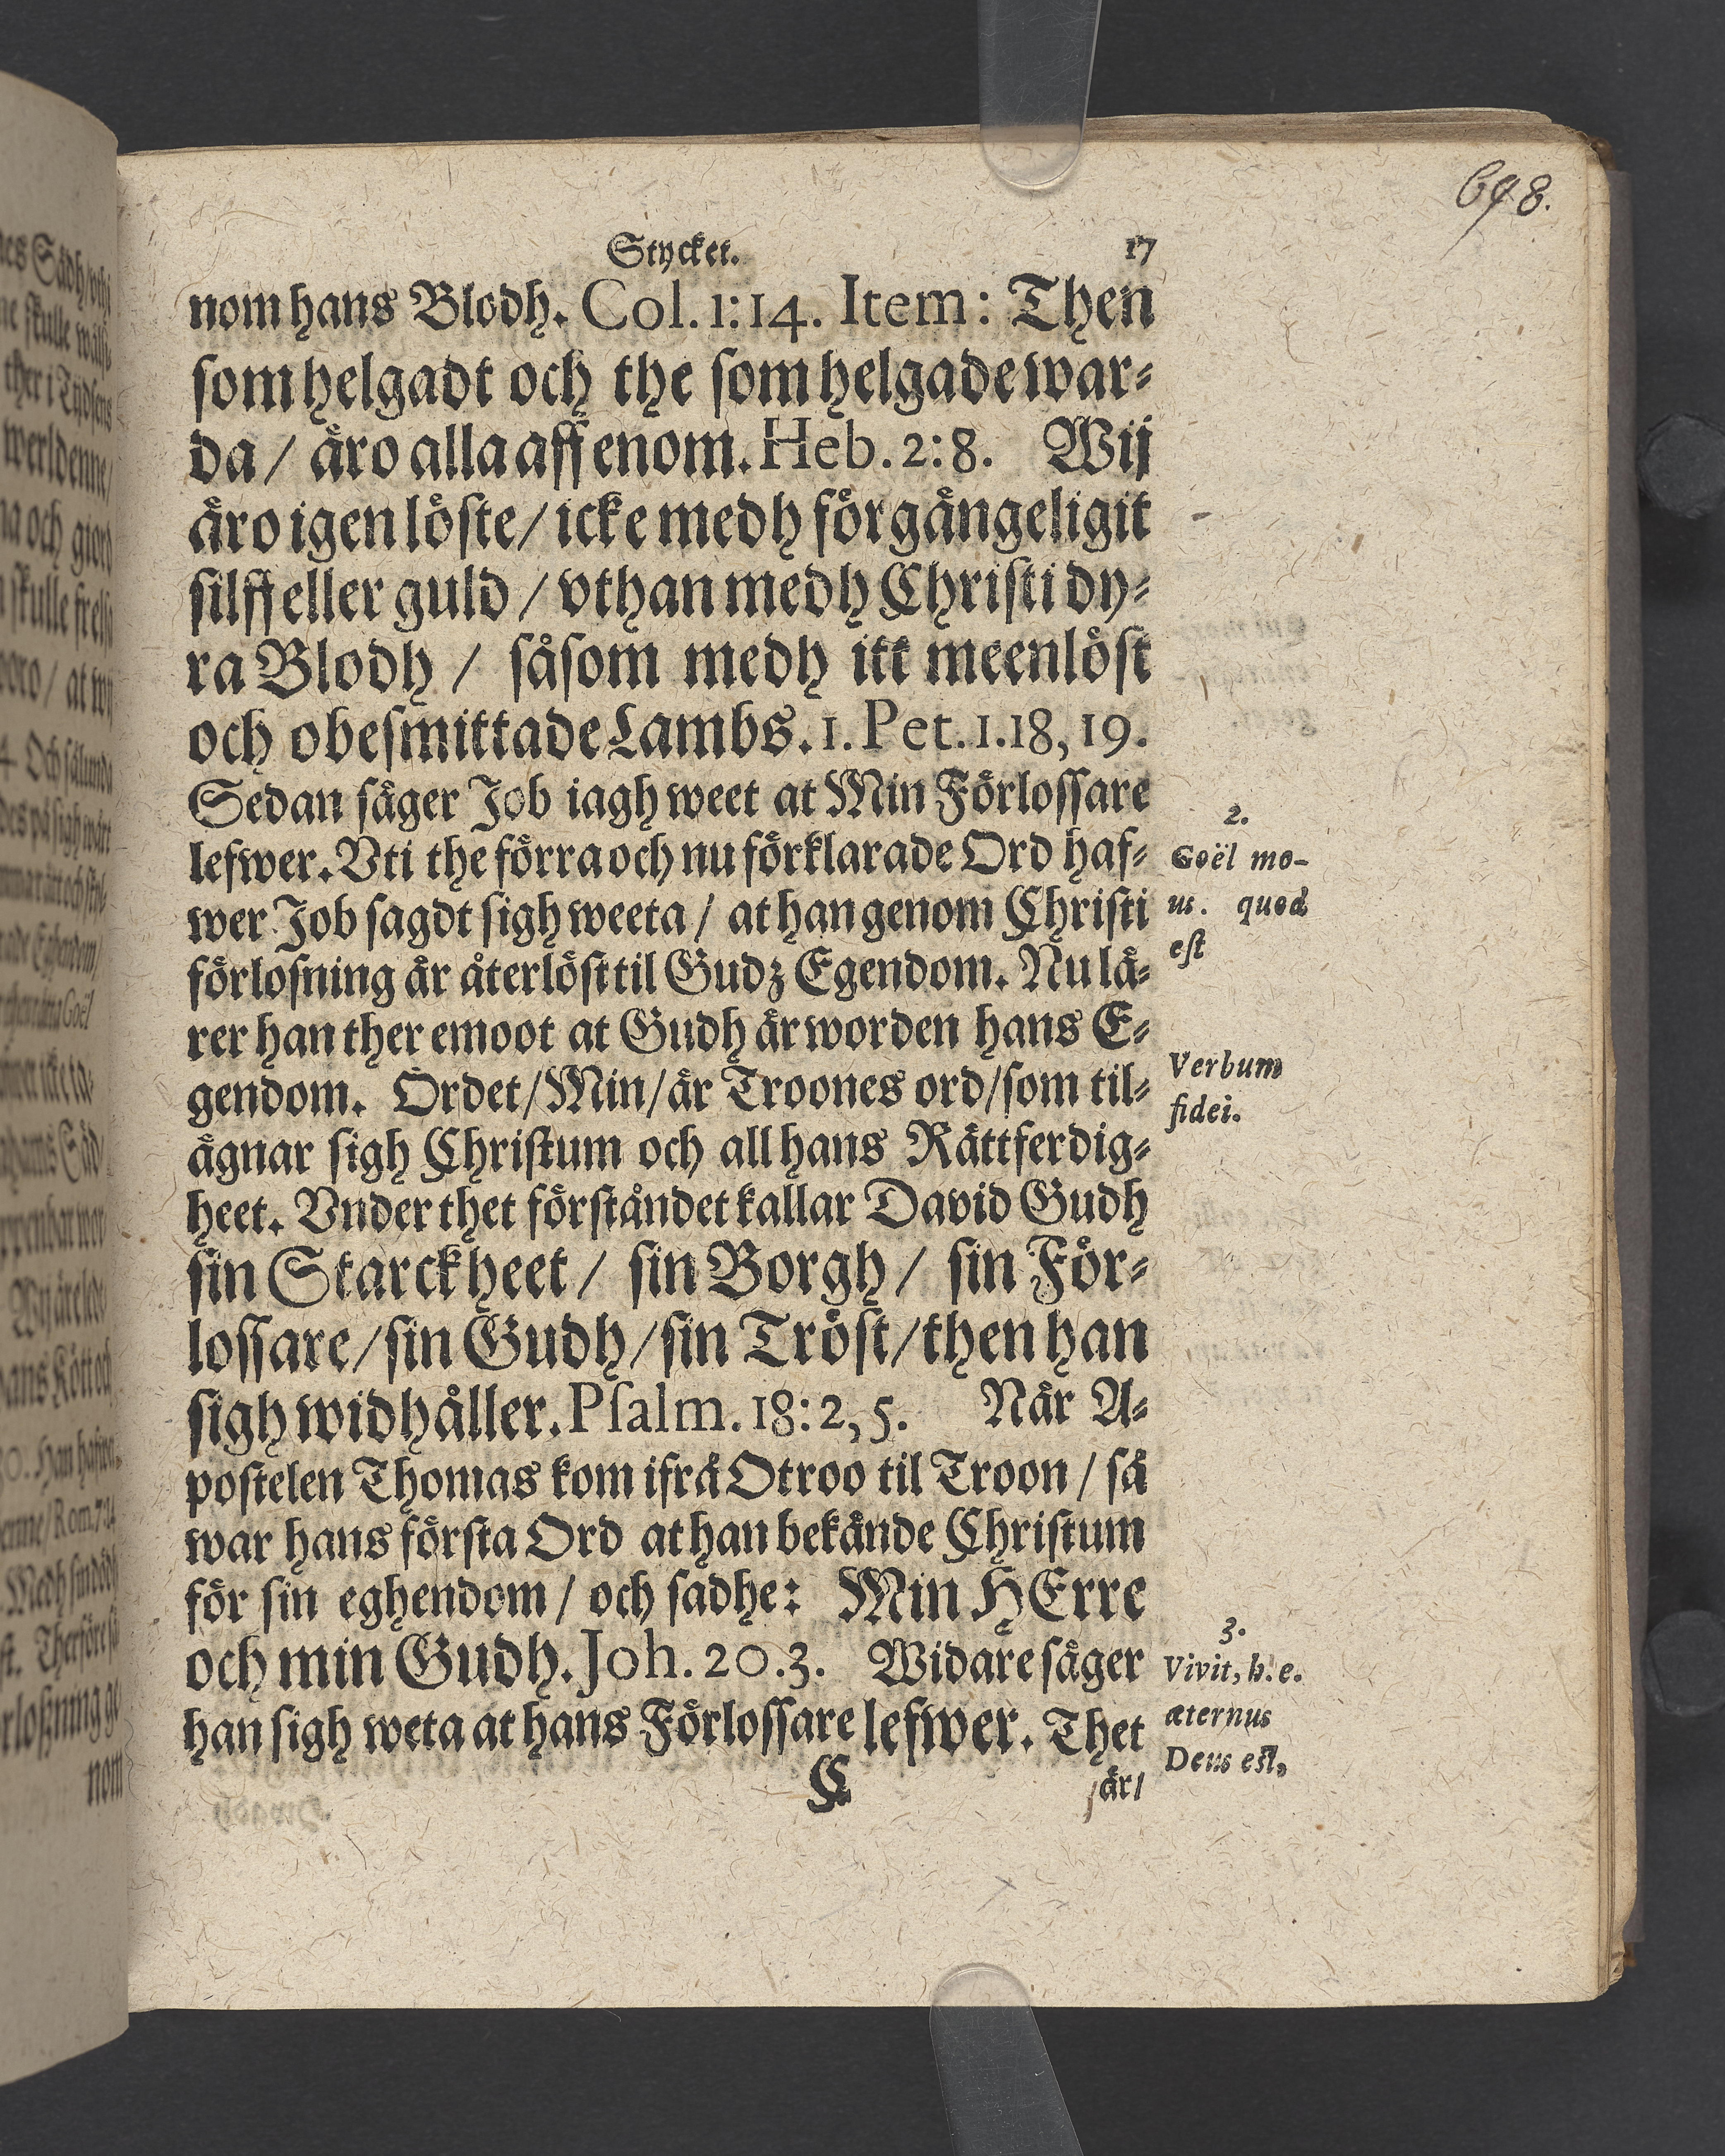 698.
Stycket. 17
nom hans Blodh. Col. 1:14. Item: Then
som helgadt och the som helgade war⸗
da / äro alla aff enom. Heb. 2:8. Wij
äro igenlöste / icke medh förgångeligit
silff eller guld / vthan medh Christi dy⸗
ra Blodh / såsom medh itt meenlöst
och obesmittade Lambs. 1. Pet. 1.18, 19.
Sedan säger Job iagh weet at Min Förlossare
lefwer. Vti the förra och nu förklarade Ord haf⸗
wer Job sagdt sigh weeta / at han genom Christi
förlosning är återlöst til Gudz Egendom. Nu lä⸗
rer han ther emoot at Gudh är worden hans E⸗
gendom. Ordet / Min / är Troones ord / som til⸗
ägnar sigh Christum och all hans Rättferdig⸗
heet. Vnder thet förståndet kallar David Gudh
sin Starckheet / sin Borgh / sin För⸗
lossare / sin Gudh / sin Tröst / then han
sigh widhåller. Psalm. 18:2, 5. När A⸗
postelen Thomas kom ifrå Otroo til Troon / så
war hans första Ord at han bekände Christum
för sin eghendom / och sadhe: Min HErre
och min Gudh. Joh. 20.3. Widare säger
han sigh weta at hans Förlossare lefwer. Thet
C är /
2.
Goël me-
us. quod
est
Verbum
fidei.
3.
Vivit, h. e.
æternus
Deus est,